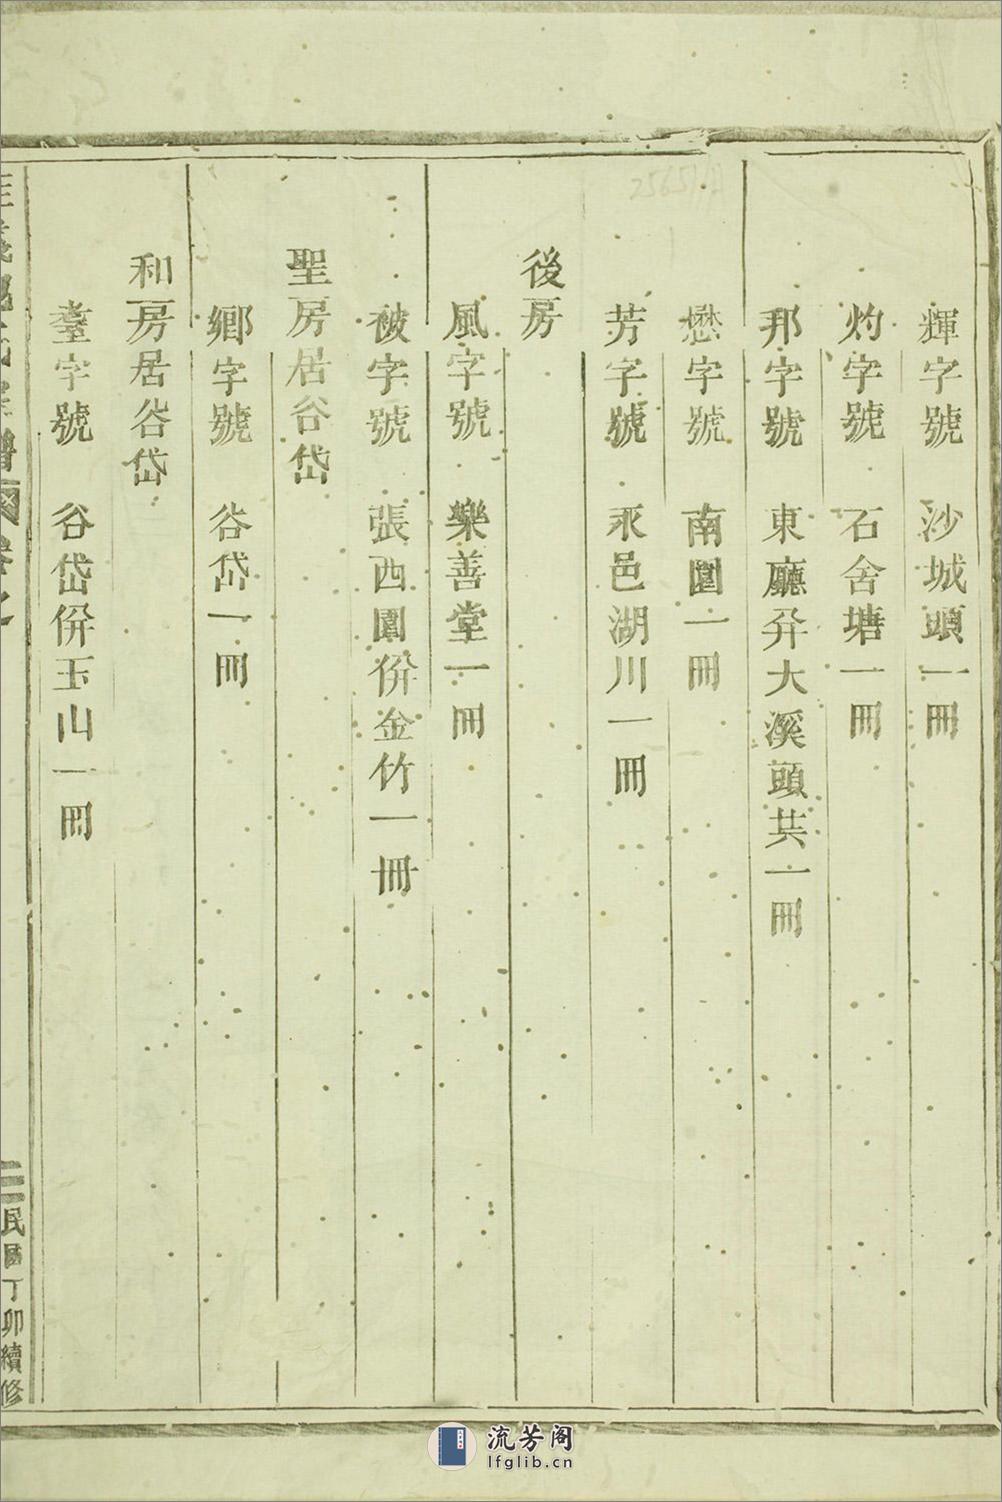 輝字號 沙城頭一冊
灼字號 石舍塘一冊
邦字號 東廳弁大溪頭共一冊
懋字號 南園一冊
芳字號 永邑湖川一冊
後房
風字號 樂善堂一冊
被字號 張西園併金竹一冊
聖房居谷岱
鄉字號 谷岱一冊
和房居谷岱
臺字號 谷岱併玉山一冊
氏宗譜 卷之
三 民國丁卯續修
25651
流芳阁
lfglib.cn